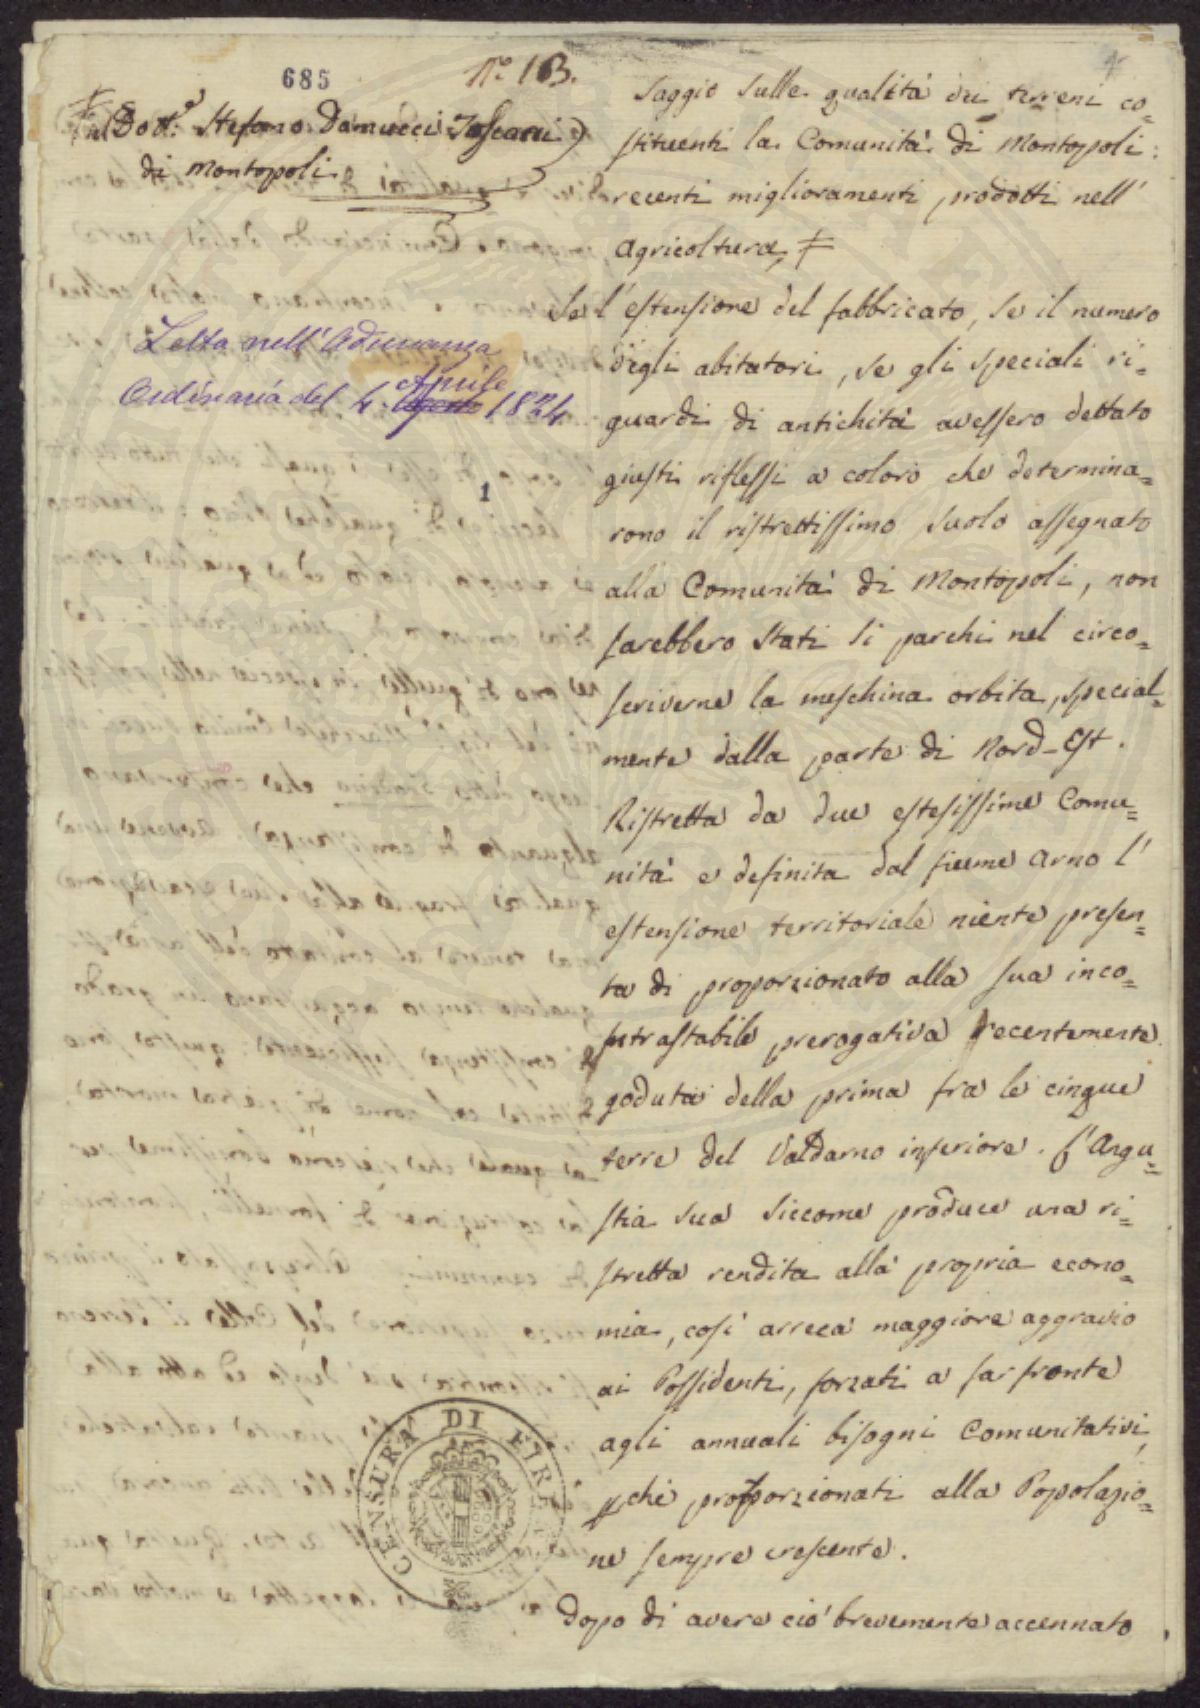 685
N.º 163.
‡ (Dott.e Stefano Damucci Toscani)
di Montopoli.
Letta nell'Adunanza
Ordinaria del 4. Agosto Aprile 1824
1
Saggio sulle qualità dei terreni co=
stituenti la Comunità di Montopoli:
recenti miglioramenti, prodotti nell'
Agricoltura, ‡
Se l'estensione del fabbricato, se il numero
degli abitatori, se gli speciali ri=
guardi di antichità avessero dettato
giusti riflessi a coloro che determina=
rono il ristrettissimo suolo assegnato
alla Comunità di Montopoli, non
sarebbero stati sì parchi nel circo=
scriverne la meschina orbita, special=
mente dalla parte di Nord-Est.
Ristretta da due estesissime Comu=
nità e definita dal fiume Arno l'
estensione territoriale niente presen=
ta di proporzionato alla sua inco=
ntrastabile prerogativa recentemente
goduta della prima fra le cinque
terre del Valdarno inferiore. L'Angu=
stia sua siccome produce una ri=
stretta rendita alla propria econo=
mia, così arreca maggiore aggravio
ai Possidenti, forzati a far fronte
agli annuali bisogni Comunitativi,
che proporzionati alla Popolazio=
ne sempre crescente.
Dopo di avere ciò brevemente accennato
CENSURA DI FIRENZE